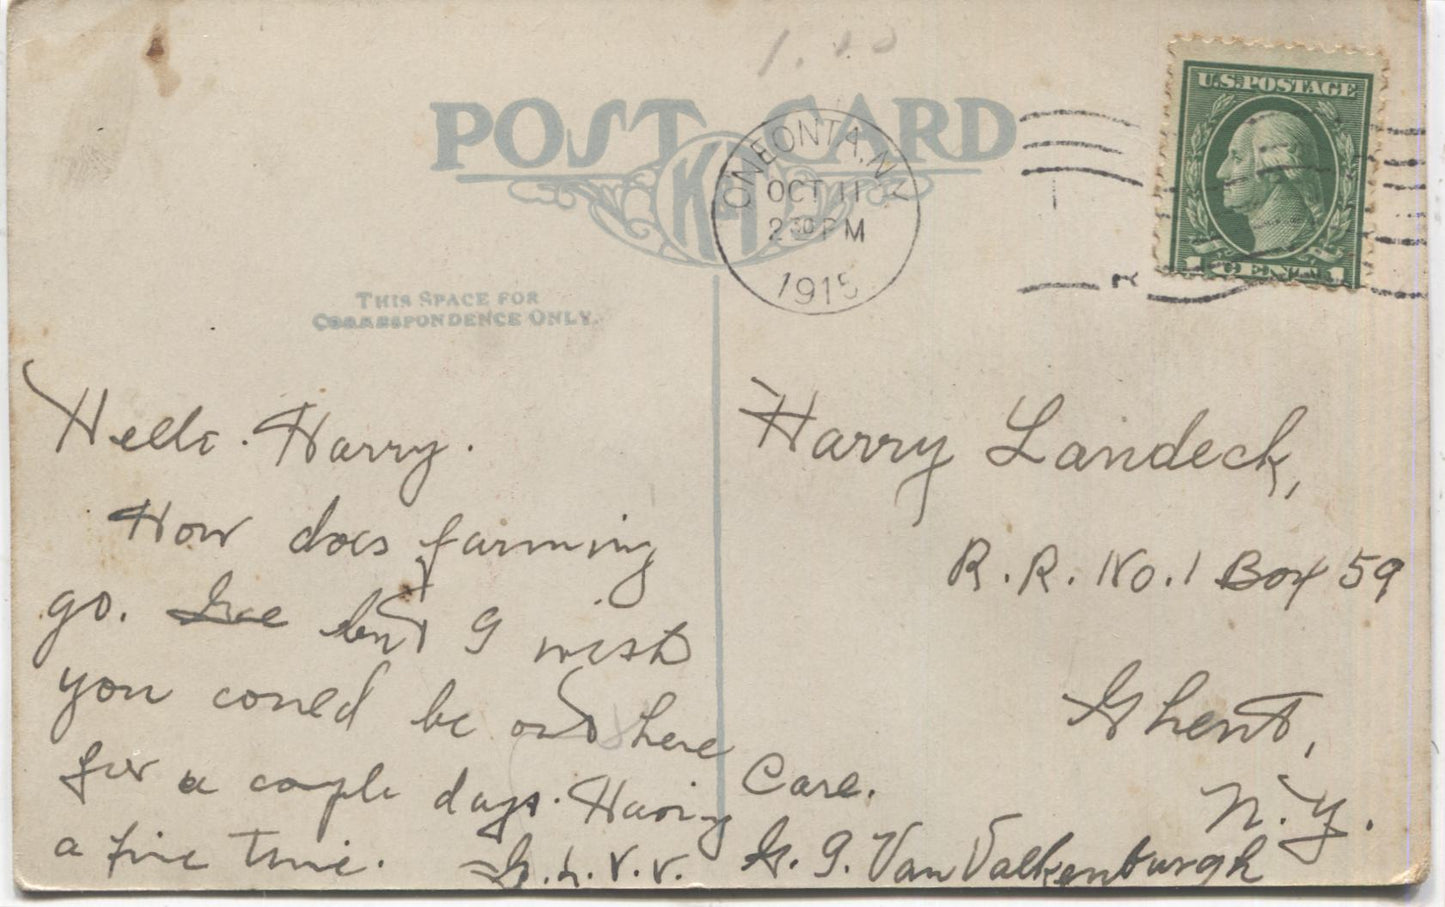 1.10
POST CARD
K
ONEONTA, N.Y.
OCT 11
2 30 PM
1915
U.S. POSTAGE
1 CENT 1
THIS SPACE FOR
CORRESPONDENCE ONLY.
Hello. Harry.
How does farming
go. but I wish
you could be out here
for a couple days. Having
a fine time.
L. V. V.
Harry Landeck,
R. R. No. 1 Box 59
Ghent,
N. Y.
Care.
G. VanValkenburgh